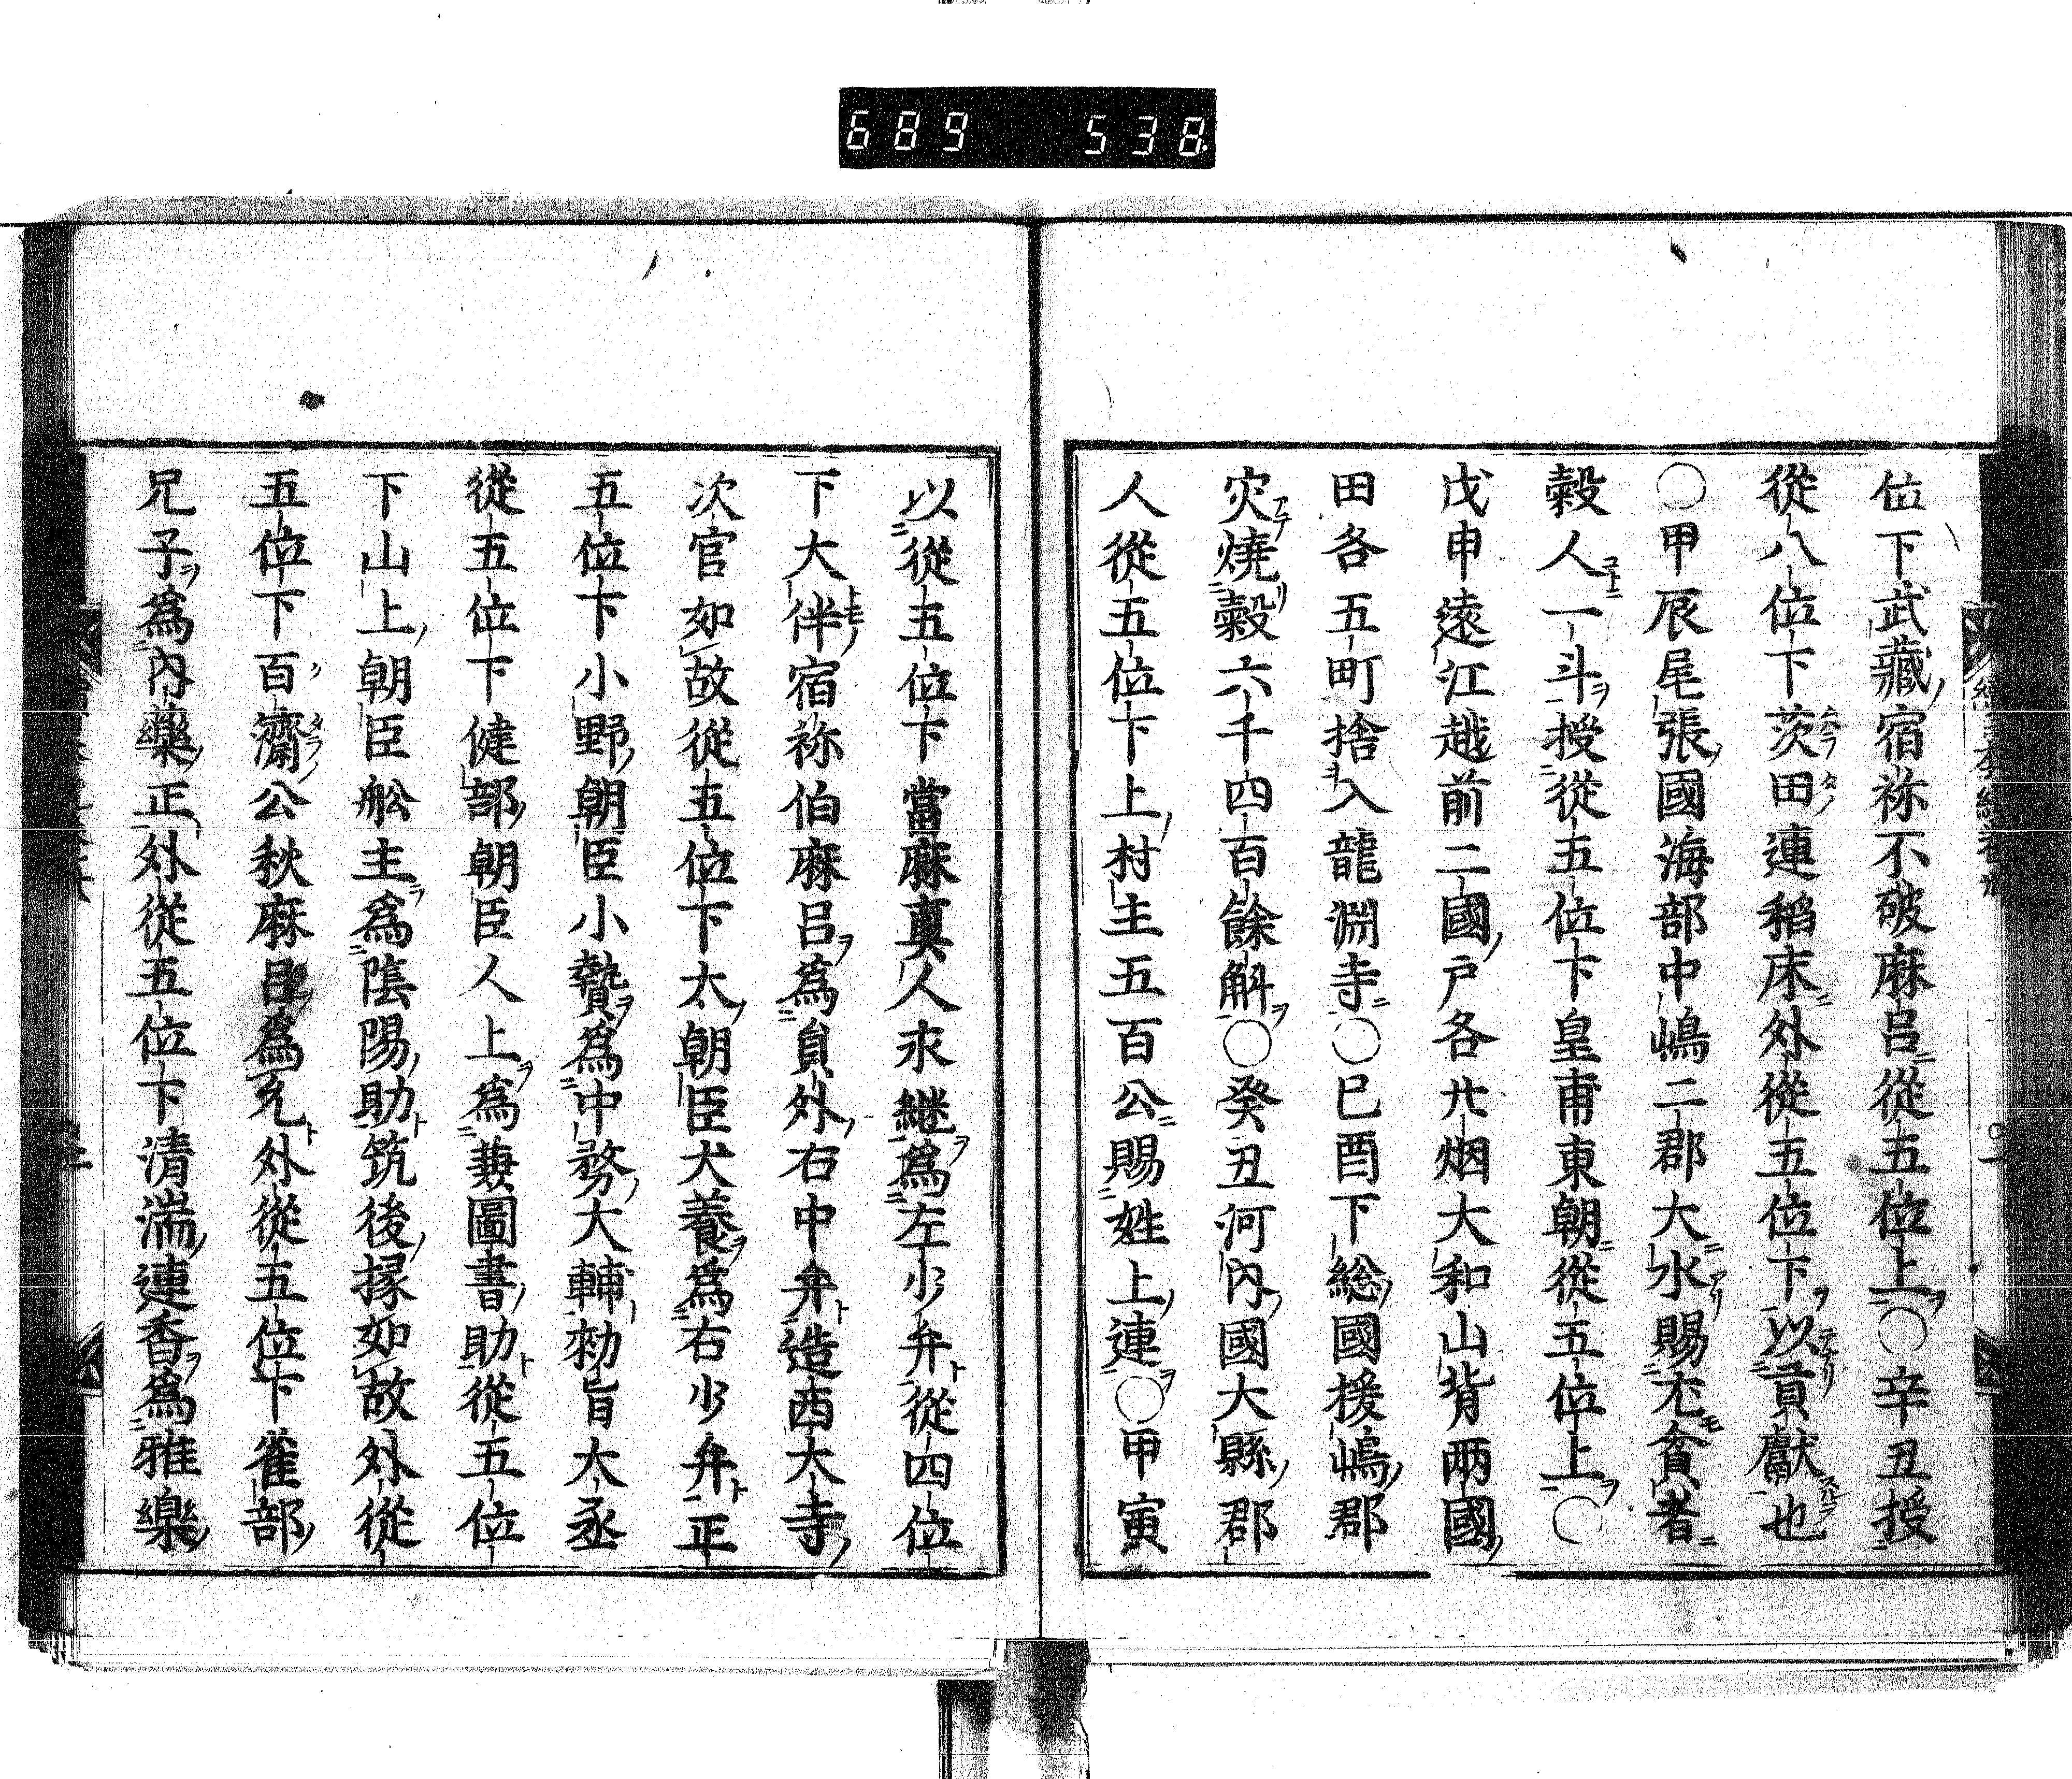 689 538
位下武藏宿祢不破麻呂從五位上○辛丑授
從八位下茨田連稻床外從五位下以貢獻也
○甲辰尾張國海部中嶋二郡大水賜尤貧者
穀人一斗授從五位下皇甫東朝從五位上○
戊申遠江越前二國戶各廿烟大和山背兩國
田各五町捨入龍淵寺○巳酉下総國猨嶋郡
灾燒穀六千四百餘斛○癸丑河內國大縣郡
人從五位下上村主五百公賜姓上連○甲寅
以從五位下當麻真人永継為左少弁從四位
下大伴宿祢伯麻呂為貟外右中弁造西大寺
次官如故從五位下太朝臣犬養為右少弁正
五位下小野朝臣小贄為中務大輔勑旨大丞
從五位下健部朝臣人上為蕪圖書助從五位
下山上朝臣舩主為隂陽助筑後掾如故外從
五位下百濟公秋麻呂為允外從五位下雀部
兄子為內藥正外從五位下清湍連香為雅樂